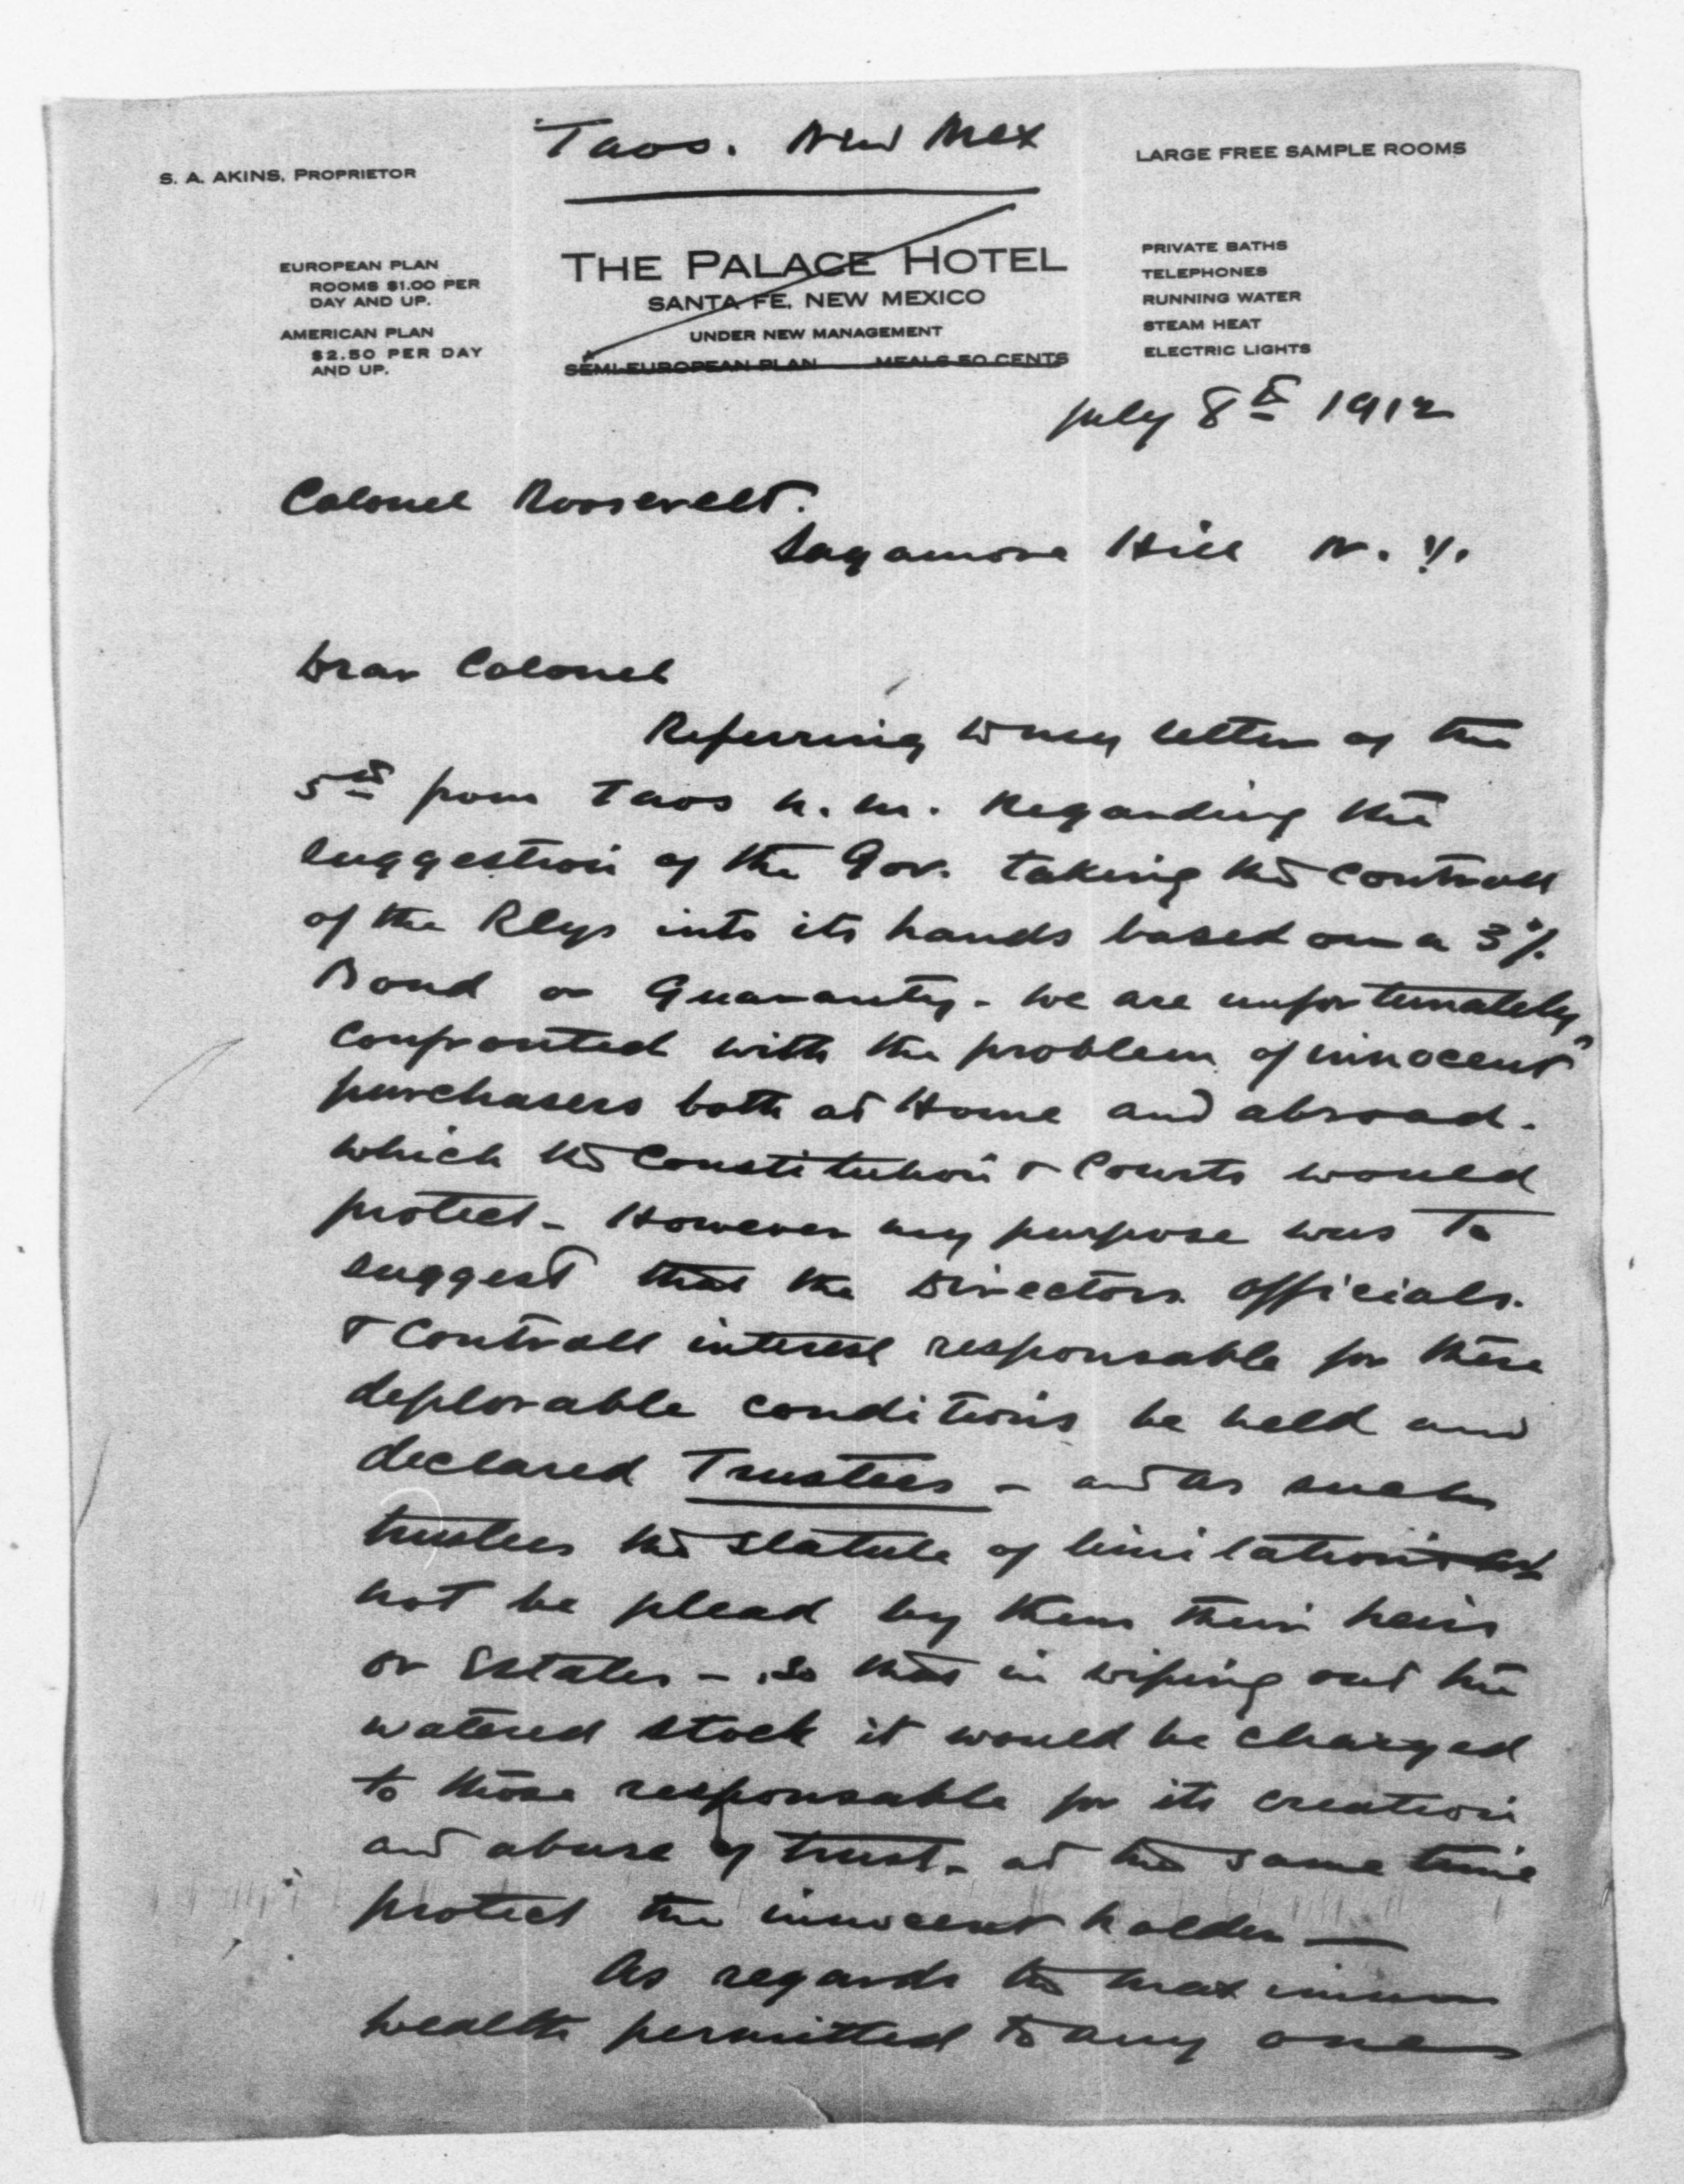 Taos. New Mex
S. A. AKINS, PROPRIETOR
LARGE FREE SAMPLE ROOMS
EUROPEAN PLAN
ROOMS $1.00 PER
DAY AND UP.
AMERICAN PLAN
$2.50 PER DAY
AND UP.
THE PALACE HOTEL
SANTA FE, NEW MEXICO
UNDER NEW MANAGEMENT
SEMI-EUROPEAN PLAN MEALS 50 CENTS
PRIVATE BATHS
TELEPHONES
RUNNING WATER
STEAM HEAT
ELECTRIC LIGHTS
July 8th 1912
Colonel Roosevelt.
Sagamore Hill N. Y.
Dear Colonel
Referring to my letter of the
5th from Taos N. M. Regarding the
suggestion of the Gov. taking the controll
of the Rlys into its hands based on a 3%
Bond or Guaranty - we are unfortunately
confronted with the problem of "innocent"
purchasers both at Home and abroad.
which the Constitution & Courts would
protect - However my purpose was to
suggest that the Directors officials.
& Controll interest responsable for these
deplorable conditions be held and
declared Trustees - and as such
trustees the statute of limitations
not be plead by them their heirs
or Estates - so that in wiping out the
watered stock it would be charged
to those responsable for its creation
and abuse of trust - at the same time
protect the innocent holder —
As regards the maximum
wealth permitted to any one